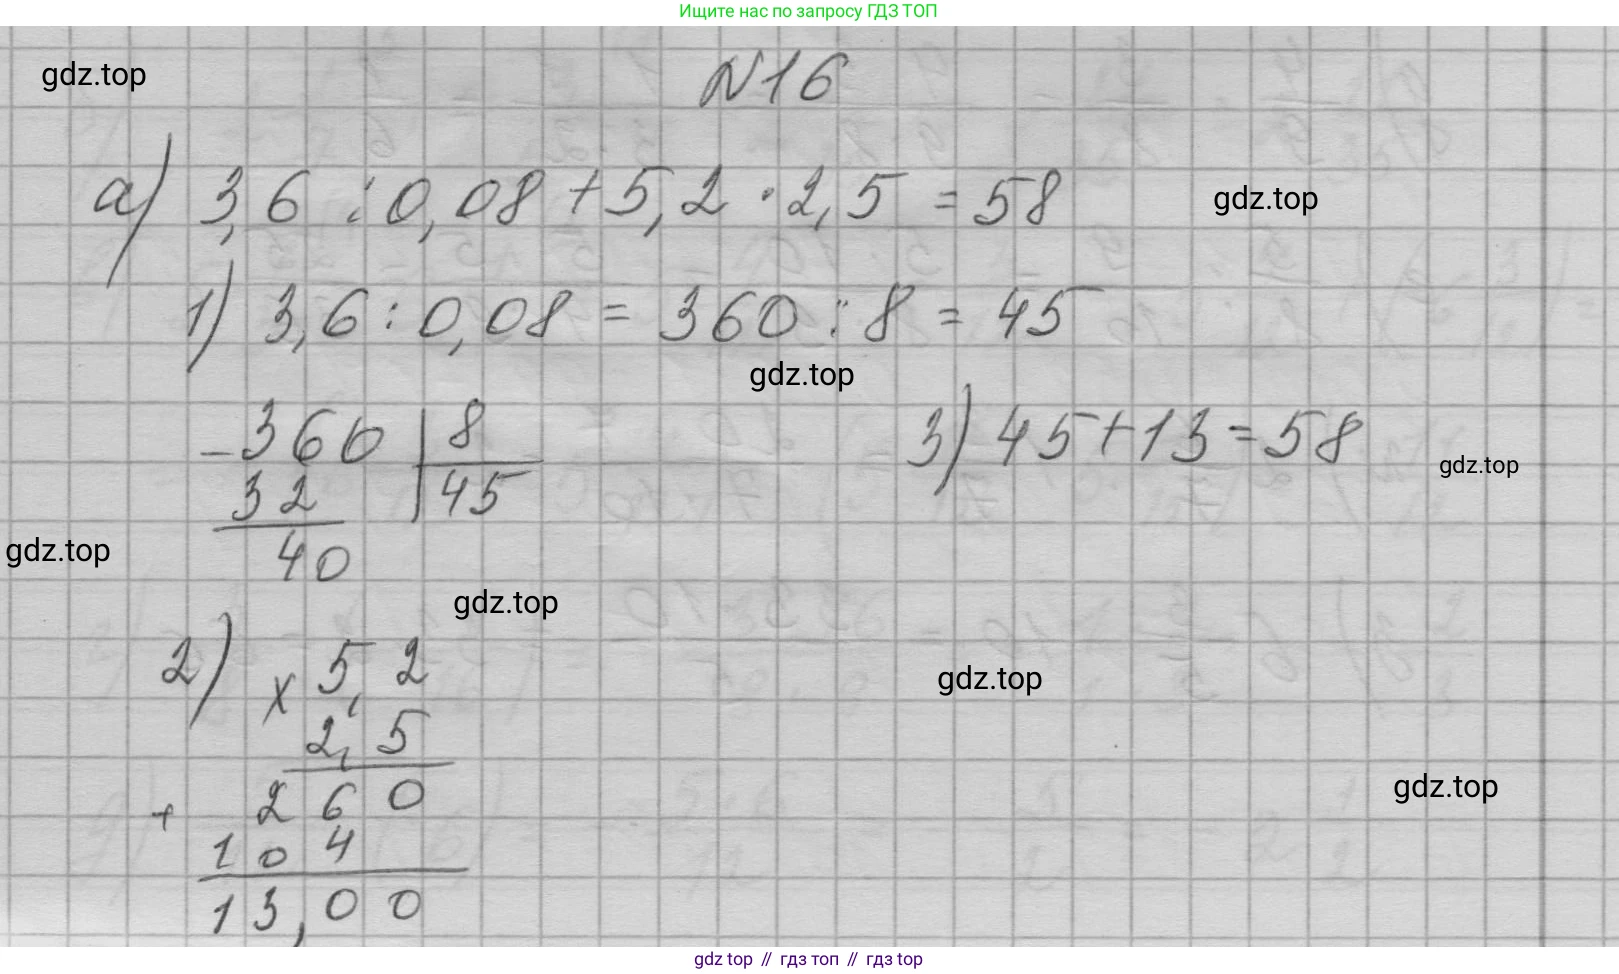 Ищите нас по запросу ГДЗ ТОП
N16
gdz.top
а) 3,6 : 0,08 + 5,2 · 2,5 = 58
gdz.top
1) 3,6 : 0,08 = 360 : 8 = 45
gdz.top
- 360 | 8
32 | 45
40
3) 45 + 13 = 58
gdz.top
gdz.top
gdz.top
2) x 5,2
2,5
gdz.top
+ 260
104
13,00
gdz.top
gdz top // гдз топ // гдз top